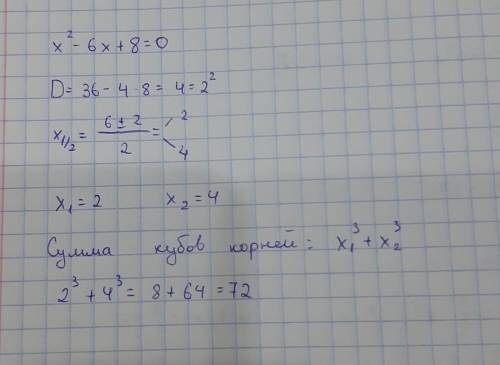 x² - 6x + 8 = 0
D = 36 - 4 · 8 = 4 = 2²
x₁/₂ = (6 ± 2)/2 = 2 4
x₁ = 2 x₂ = 4
Сумма кубов корней = x₁³ + x₂³
2³ + 4³ = 8 + 64 = 72